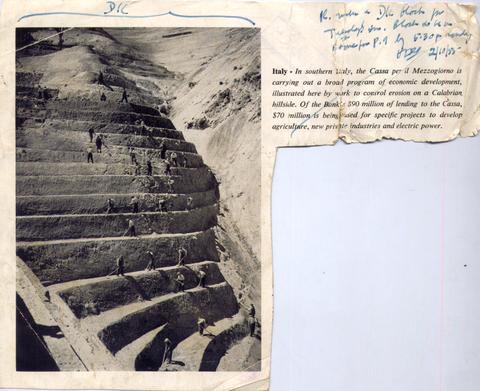 DLC
R. make a DLC block for
Tuesday's
by 5:30 p.m.
Italy - In southern Italy, the Cassa per il Mezzogiorno is
carrying out a broad program of economic development,
illustrated here by work to control erosion on a Calabrian
hillside. Of the Bank's $90 million of lending to the Cassa,
$70 million is being used for specific projects to develop
agriculture, new private industries and electric power.